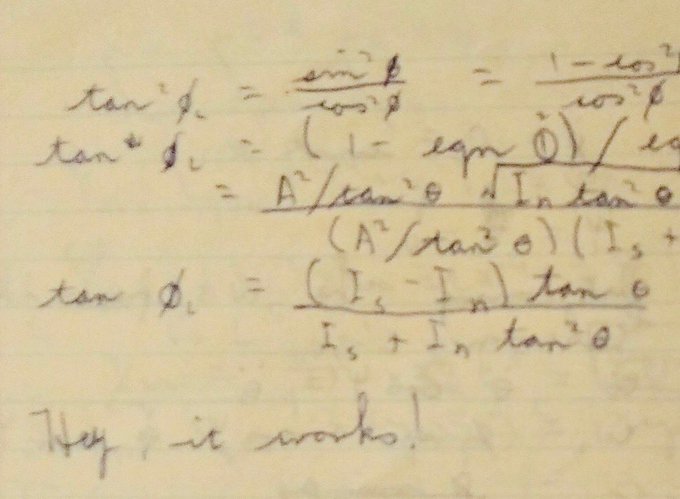 tan² φ_c = sin² φ / cos² φ = 1 - cos² φ / cos² φ
tan⁴ φ_c = (1 - eqn ①²) / eq
= A²/tan² θ √I_n tan² θ / (A²/tan² θ)(I_s +
tan φ_c = (I_s - I_n) tan θ / I_s + I_n tan² θ
Hey, it works!